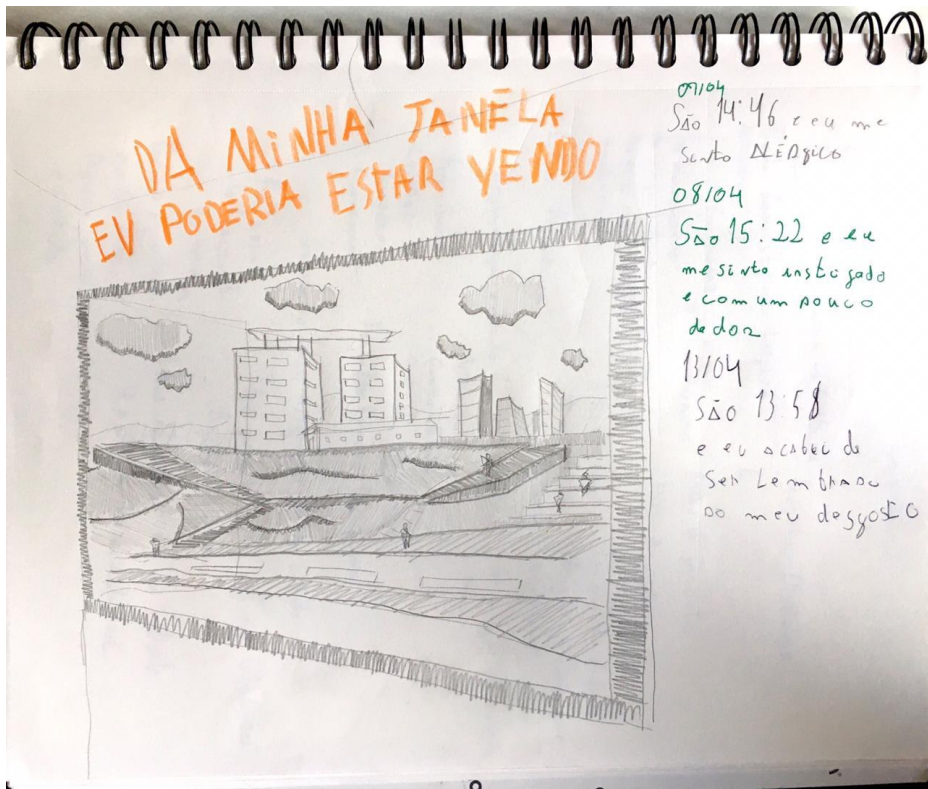 DA MINHA JANÉLA
EU PODERIA ESTAR VENDO
07/04
São 14:46 e eu me
sinto ALÉRgico
08/04
São 15:22 e eu
me sinto instigado
e com um pouco
de dor
13/04
SÃO 13:58
e eu acabei de
ser Lembrado
do meu desgosto